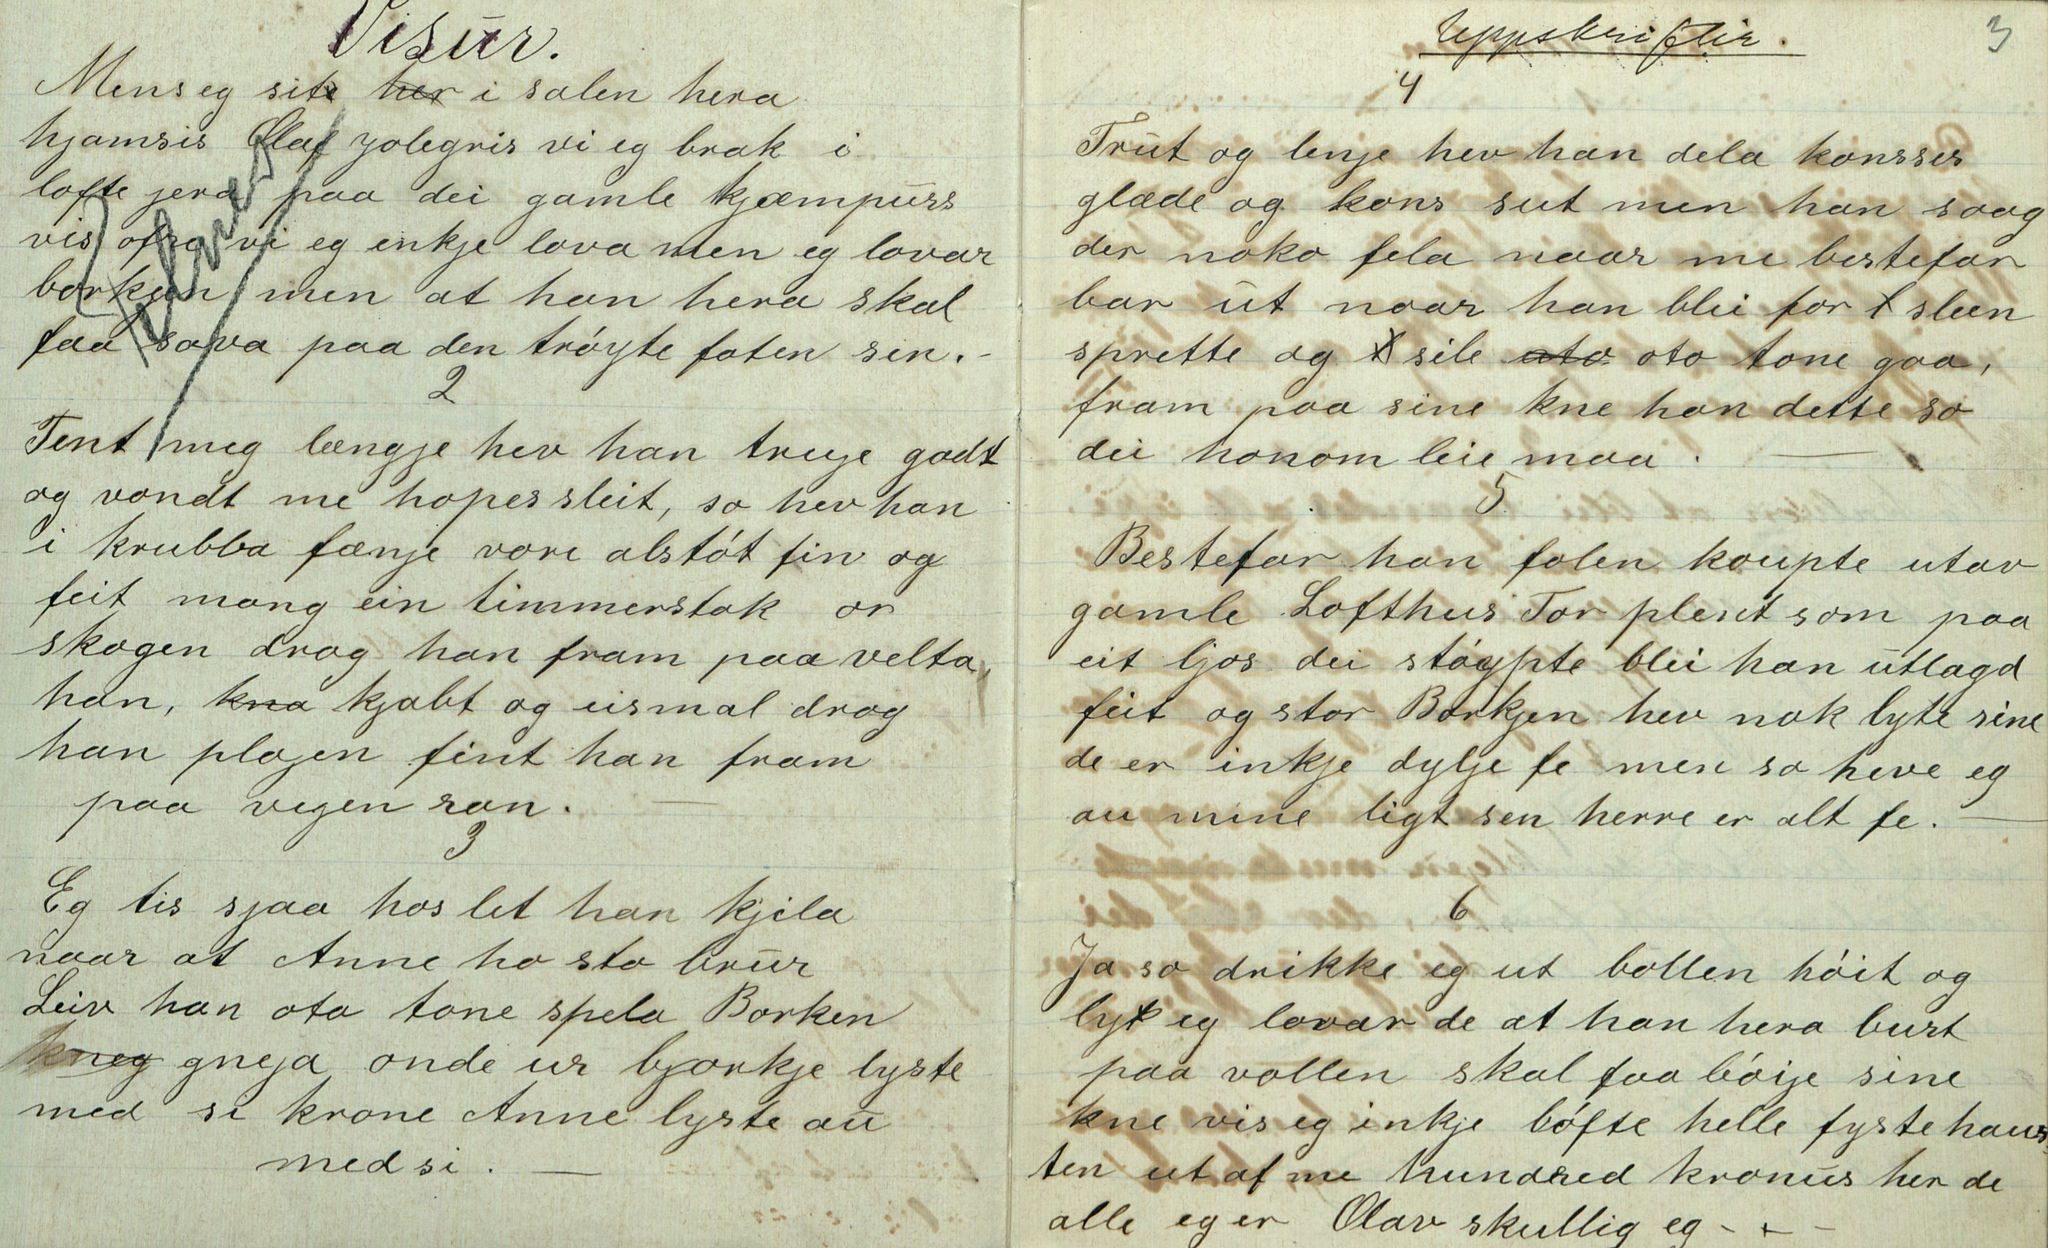 Visur.
Mens eg site ~~her~~ i salen hera
hjamsis Olaf jolegris vi eg brak i
lofte jera paa dei gamle kjæmpurss
vis ofra vi eg inkje lova men eg lovar
borkjen men at han hera skal
faa sova paa den tróyte foten sin. -
2
Tent meg længje hev han truje godt
og vondt me hopes sleit, so hev han
i krubba fænje vore alstót fin og
feit mang ein timmerstok or
skogen drog han fram paa velta
han, ~~kna~~ kjabt og eismal drog
han plojen fint han fram
paa vegen ran. —
3
Eg tis sjaa hos let han kjila
naar at Anne ho sto brur
Leiv han oto tone spela Borken
~~kneg~~ gneja onde ur bjorkje lyste
med si krone Anne lyste au
med si. —
Uppskriftir. 3
4
Trut og lenje hev han dela konsses
glæde og kons sut men han saag
der noko fela naar me bestefar
bar ut naar han blei for sleen
sprette og sile ~~oto~~ oto tone gaa,
fram paa sine kne han dette so
dei honom leie maa. —
5
Bestefar han folen koupte utav
gamle Lofthus Tor plent som paa
eit ljos dei stóypte blei han utlagd
feit og stor Borkjen hev nok lyte sine
de er inkje dylje fe men so heve eg
au mine ligt sen herre er alt fe. —
6
Ja so drikke eg ut bollen hóit og
lyt eg lovar de at han hera burt
paa vollen skal faa bóije sine
kne vis eg inkje bófte helle fyste haus
ten ut af me hundred kronus her de
alle eg er Olav skullig eg - + -